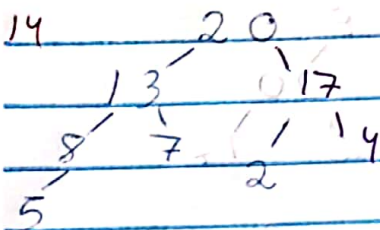 14 20
13 17
8 7 2 4
5